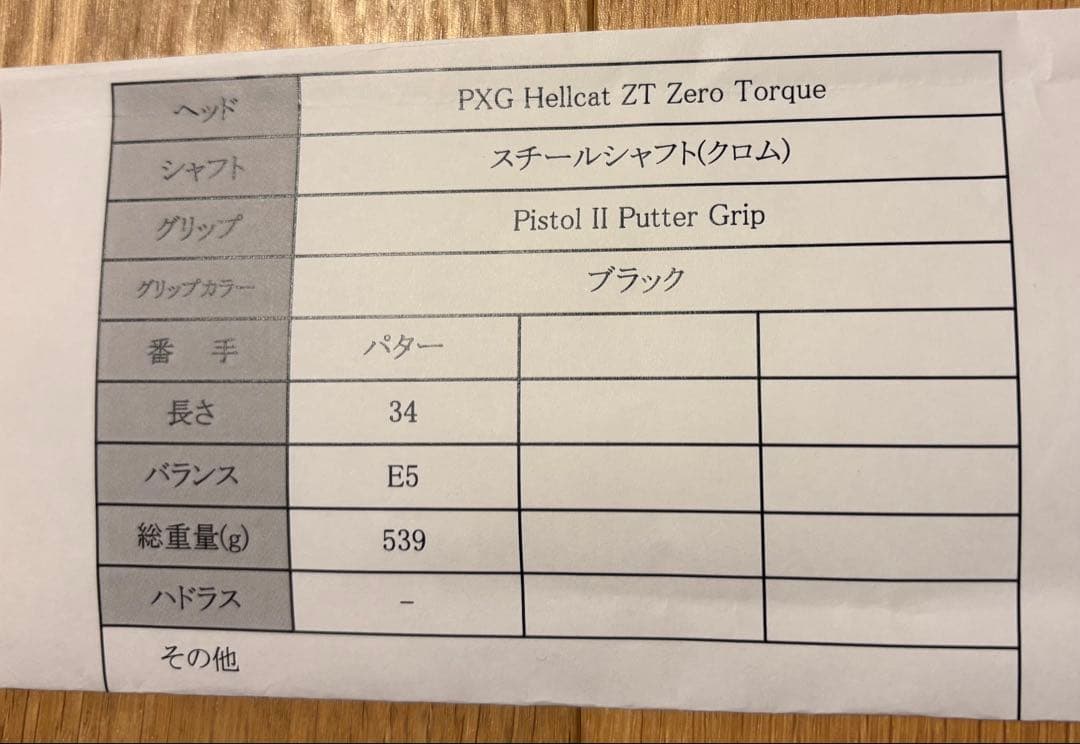 ヘッド PXG Hellcat ZT Zero Torque
シャフト スチールシャフト(クロム)
グリップ Pistol II Putter Grip
グリップカラー ブラック
番 手 パター
長さ 34
バランス E5
総重量(g) 539
ハドラス －
その他